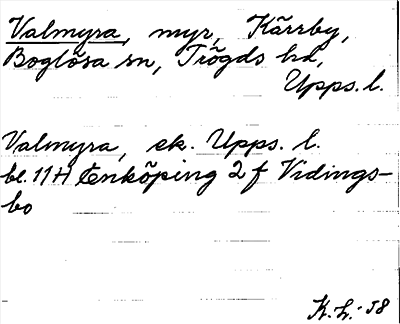 Valmyra, myr, Kärrby,
Boglösa sn, Trögds hd,
Upps. l.
Valmyra, ek. Upps. l.
bl. 11 H Enköping 2 f Vidings-
bo
K.L. -58